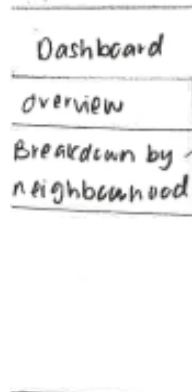 Dashboard
overview
Breakdown by
neighbourhood